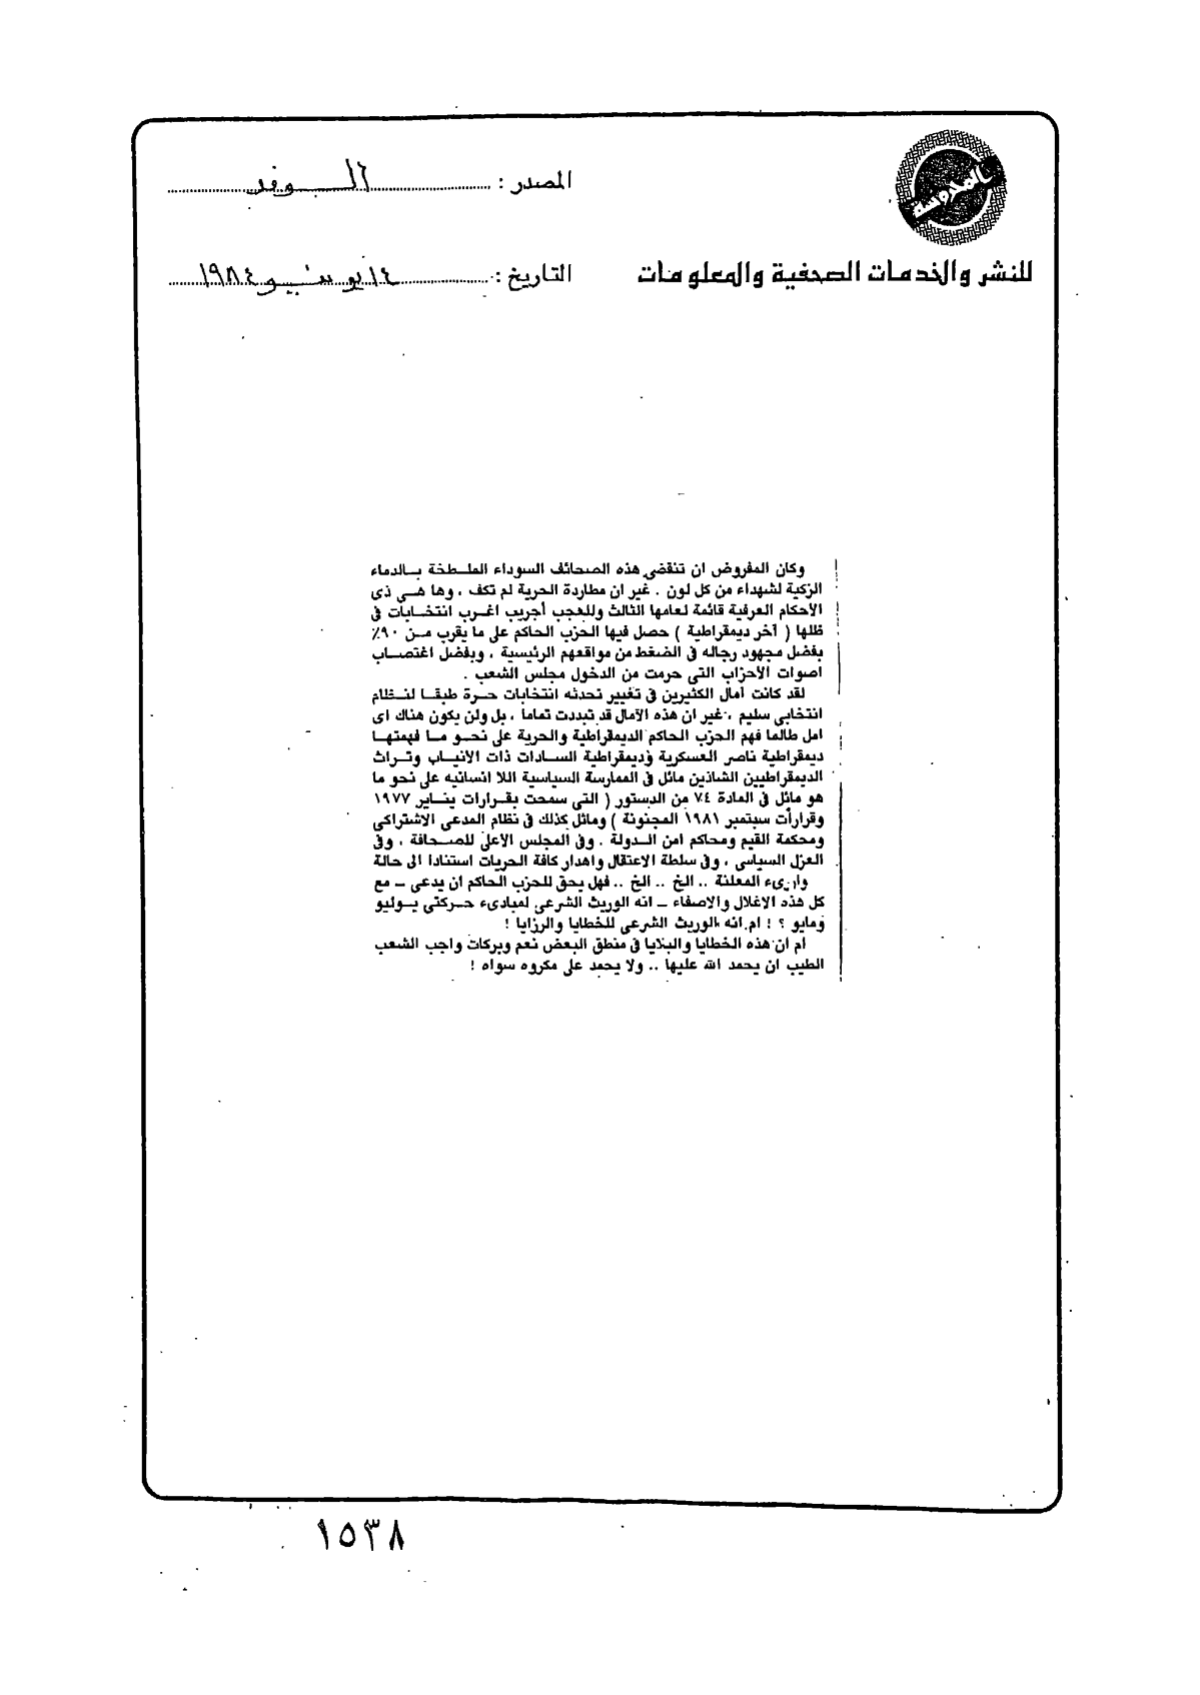 المصدر : الوفد
للنشر والخدمات الصحفية والمعلومات
التاريخ : ١٤ يونيو ١٩٨٤
وكان المفروض ان تنقضي هذه الصحائف السوداء الملطخة بالدماء
الزكية لشهداء من كل لون . غير ان مطاردة الحرية لم تكف ، وها هي ذي
الأحكام العرفية قائمة لعامها الثالث وللعجب أجريب اغرب انتخابات في
ظلها ( آخر ديمقراطية ) حصل فيها الحزب الحاكم على ما يقرب من ٩٠٪
بفضل مجهود رجاله في الضغط من مواقعهم الرئيسية ، وبفضل اغتصاب
اصوات الأحزاب التي حرمت من الدخول مجلس الشعب .
لقد كانت آمال الكثيرين في تغيير تحدثه انتخابات حرة طبقا لنظام
انتخابى سليم ، غير ان هذه الآمال قد تبددت تماما ، بل ولن يكون هناك اى
امل طالما فهم الحزب الحاكم الديمقراطية والحرية على نحو ما فهمتها
ديمقراطية ناصر العسكرية وديمقراطية السادات ذات الانياب وتراث
الديمقراطيين الشاذين ماثل في الممارسة السياسية اللا انسانيه على نحو ما
هو ماثل في المادة ٧٤ من الدستور ( التي سمحت بقرارات يناير ١٩٧٧
وقرارات سبتمبر ١٩٨١ المجنونة ) وماثل كذلك في نظام المدعى الاشتراكى
ومحكمة القيم ومحاكم امن الدولة . وفي المجلس الأعلى للصحافة ، وفي
العزل السياسى ، وفي سلطة الاعتقال واهدار كافة الحريات استنادا الى حالة
وارىء المعلنة .. الخ .. الخ .. فهل يحق للحزب الحاكم ان يدعى ــ مع
كل هذه الاغلال والاصفاء ــ انه الوريث الشرعى لمبادىء حركتى يوليو
ومايو ؟ ! ام انه الوريث الشرعى للخطايا والرزايا !
أم ان هذه الخطايا والبلايا في منطق البعض نعم وبركات واجب الشعب
الطيب ان يحمد الله عليها .. ولا يحمد على مكروه سواه !
١٥٣٨